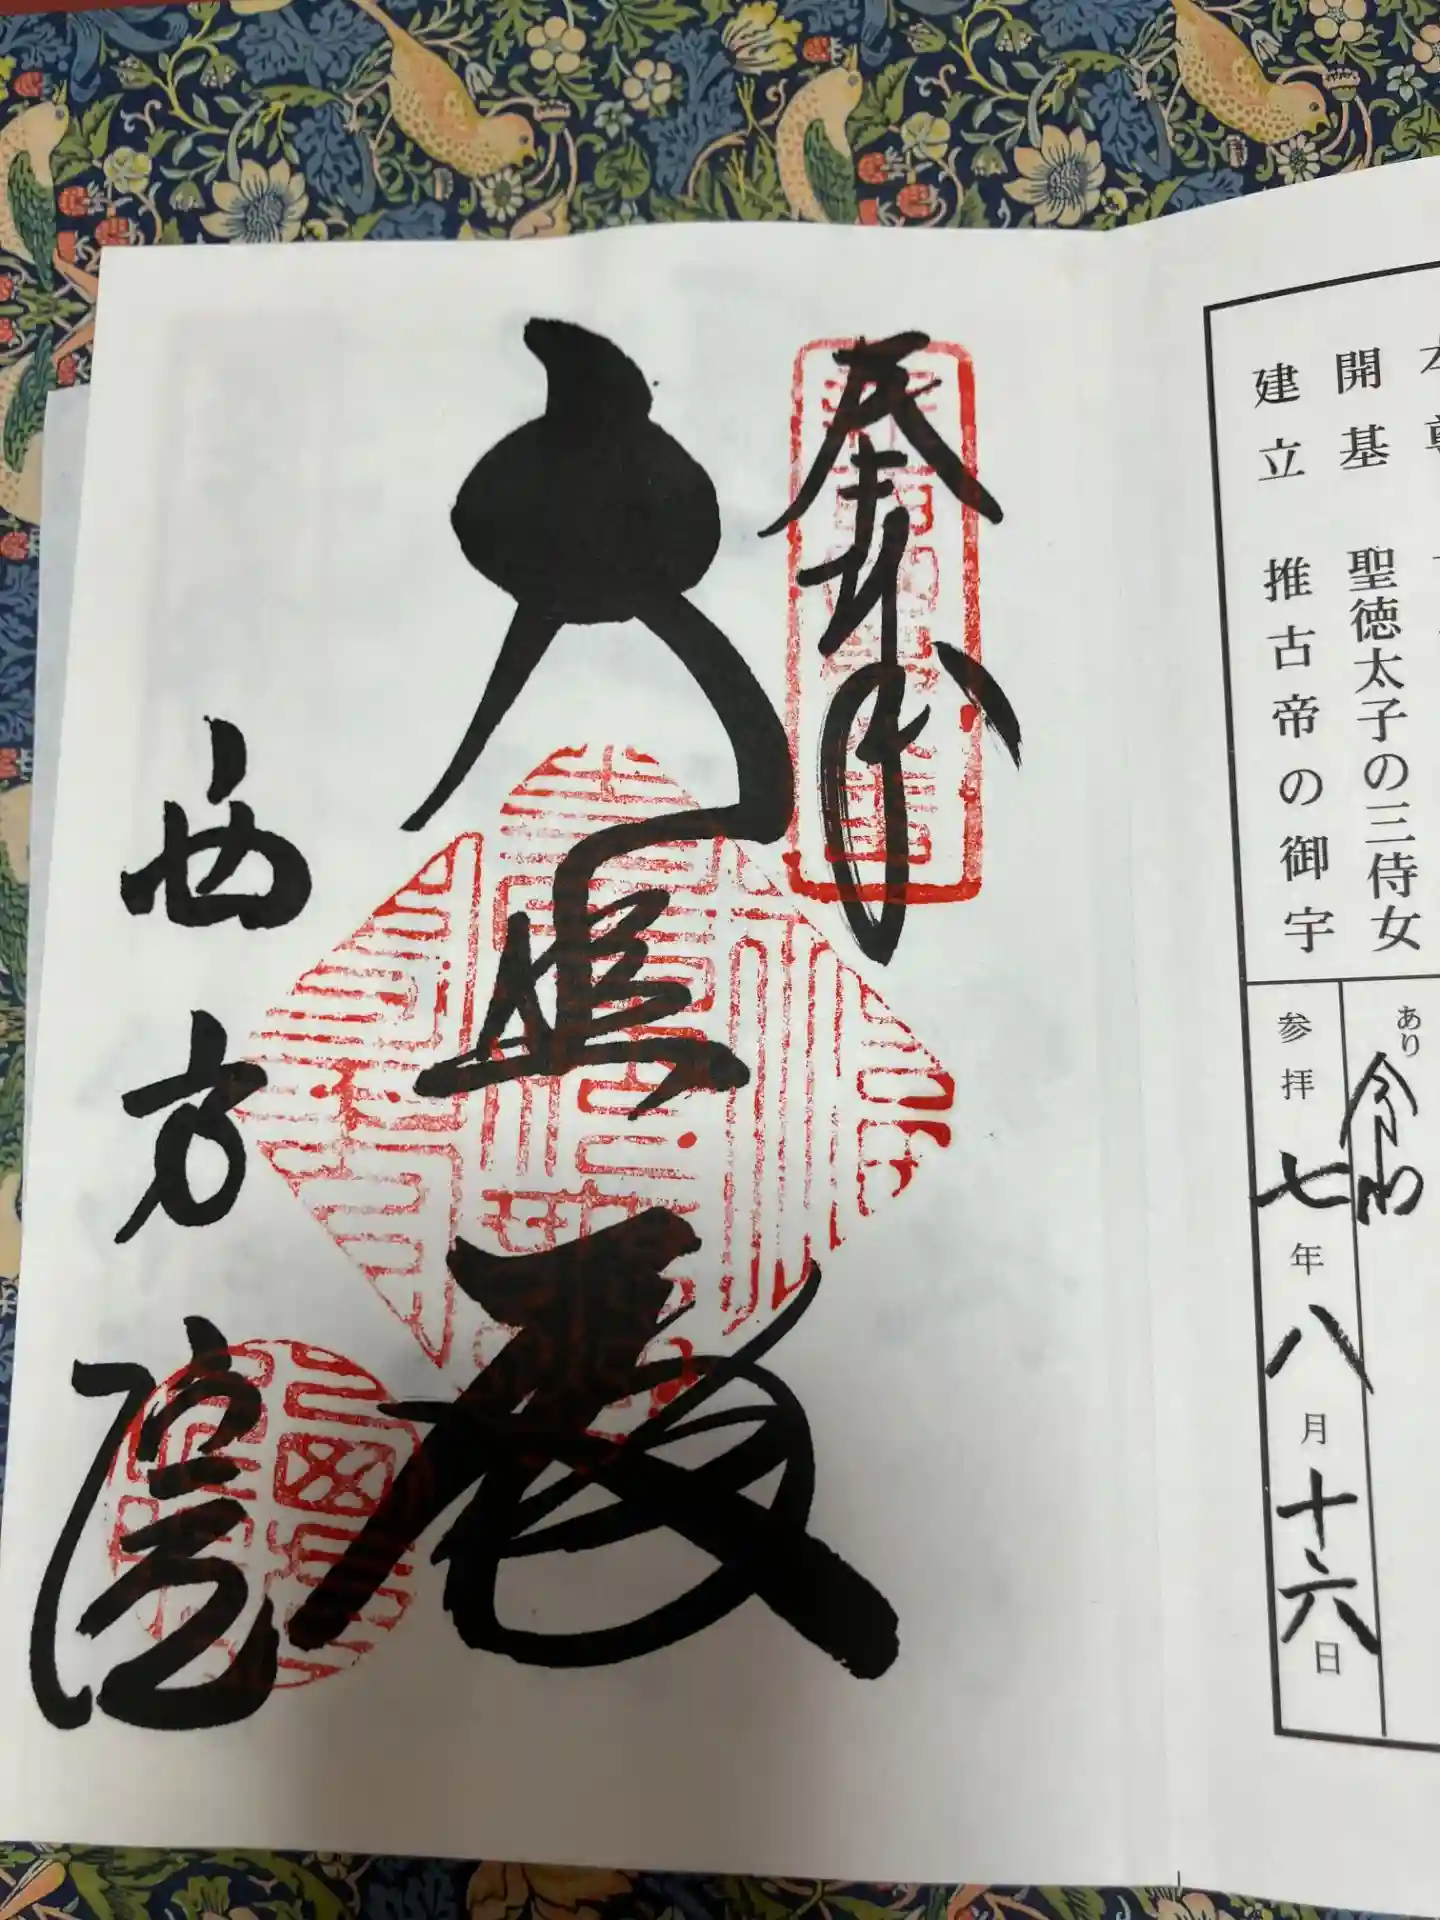 開基 聖徳太子の三侍女
建立 推古帝の御宇
あり
令和
参拝 七年 八月 十六日
奉拝
大悲殿
西方院